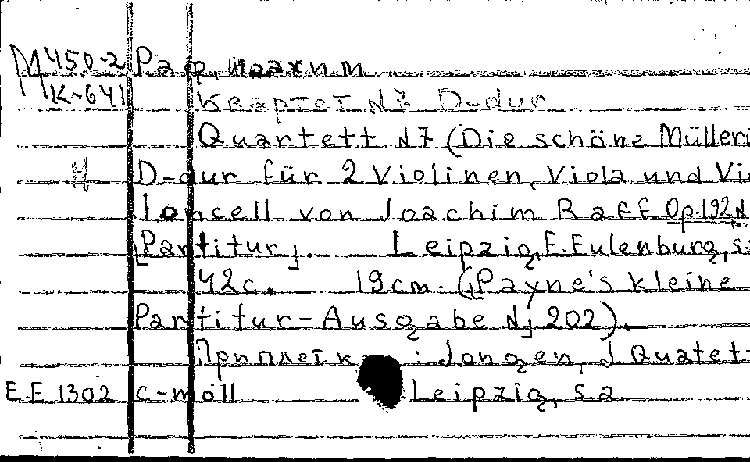 М450-2 Раф, Иоахим
К-641 Квартет №7 D-dur
Quartett №7 (Die schöne Mülleri
Н D-dur für 2 Violinen, Viola und Vio
loncell von Joachim Raff. Op.192 №
[Partitur]. Leipzig, E. Eulenburg, s.
42c. 19cm. (Payne's kleine
Partitur-Ausgabe № 202).
Приплетка: Jongen, J Quatet
EE 1302 c-moll Leipzig, s.a